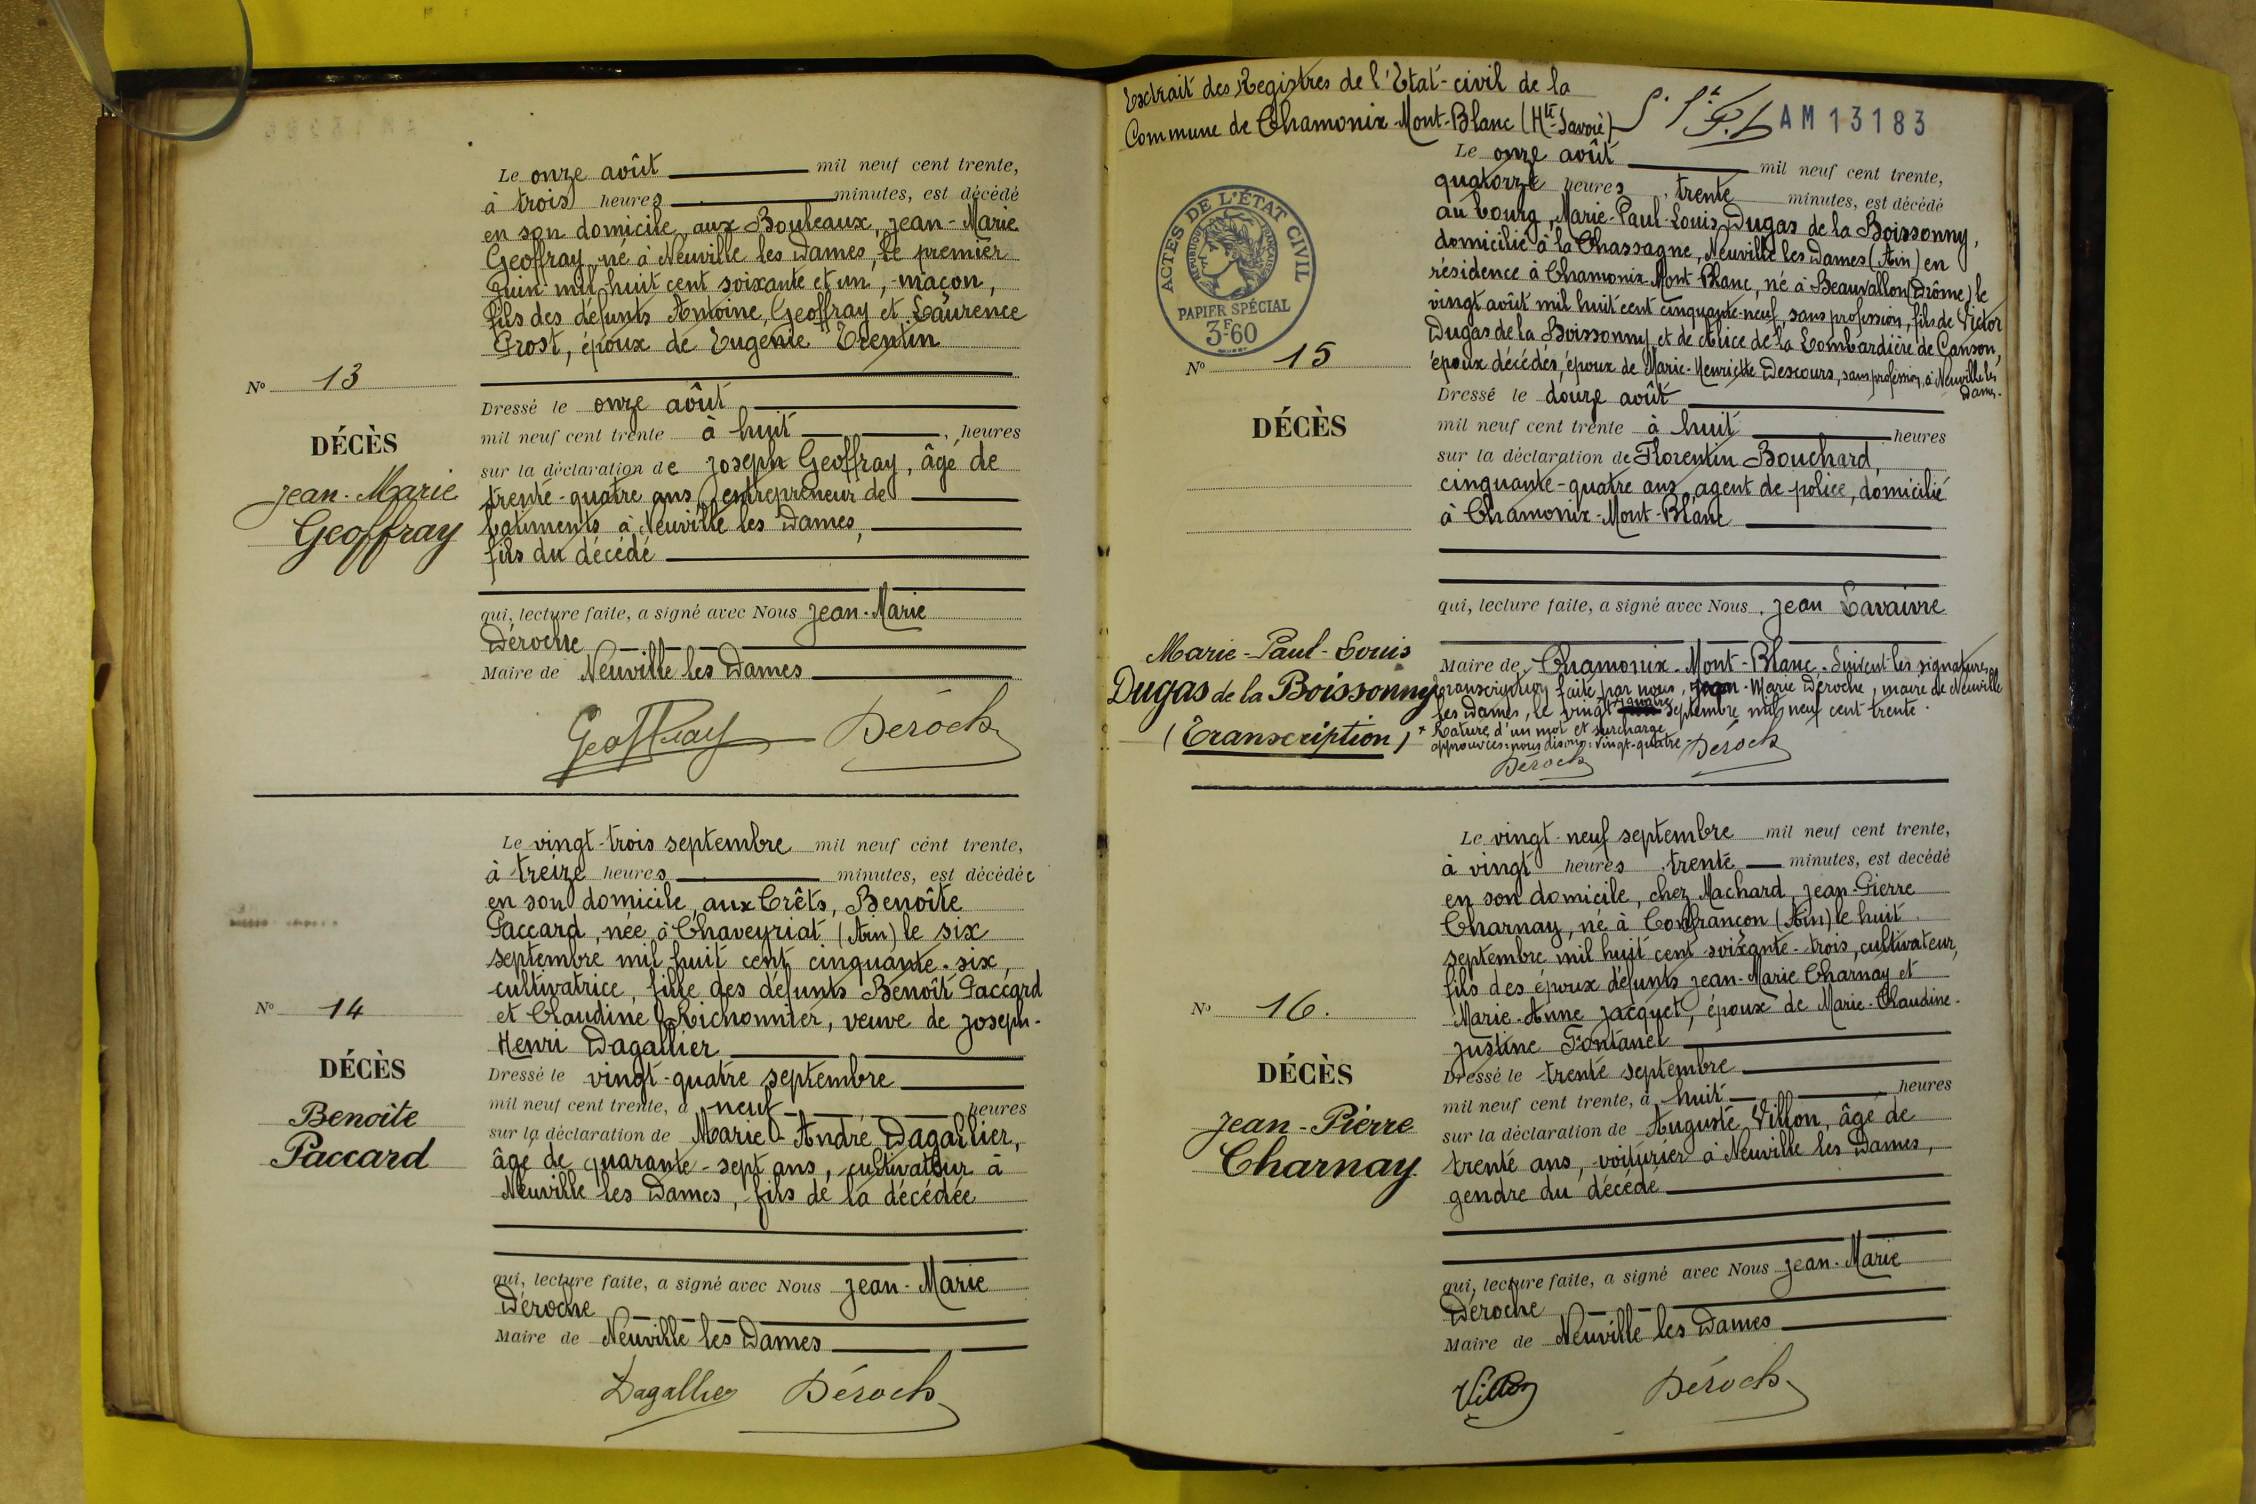 Le onze août mil neuf cent trente,
à trois heures minutes, est décédé
en son domicile, aux Bouleaux, Jean-Marie
Geoffray, né à Neuville les Dames, le premier
Juin mil huit cent soixante et un, maçon,
fils des défunts Antoine, Geoffray et Laurence
Prost, époux de Eugénie Trentin
N° 13
DÉCÈS
Jean-Marie
Geoffray
Dressé le onze août
mil neuf cent trente à huit heures
sur la déclaration de Joseph Geoffray, âgé de
trente-quatre ans, entrepreneur de
batiments à Neuville les Dames,
fils du décédé
qui, lecture faite, a signé avec Nous Jean-Marie
Déroche
Maire de Neuville les Dames
Geoffray Déroche
Le vingt-trois septembre mil neuf cent trente,
à treize heures minutes, est décédée
en son domicile, aux Crêts, Benoîte
Paccard, née à Chaveyriat (Ain) le six
septembre mil huit cent cinquante-six,
cultivatrice, fille des défunts Benoît Paccard
et Claudine Richonnier, veuve de Joseph-
Henri Dagallier
N° 14
DÉCÈS
Benoîte
Paccard
Dressé le vingt-quatre septembre
mil neuf cent trente, à neuf heures
sur la déclaration de Marie-André Dagallier,
âgé de quarante-sept ans, cultivateur à
Neuville les Dames, fils de la décédée
qui, lecture faite, a signé avec Nous Jean-Marie
Déroche
Maire de Neuville les Dames
Dagallier Déroche
Extrait des Registres de l'Etat-civil de la
Commune de Chamonix-Mont-Blanc (Hte-Savoie)
AM 13183
ACTES DE L'ÉTAT CIVIL
RÉPUBLIQUE FRANÇAISE
PAPIER SPÉCIAL
3F60
Le onze août mil neuf cent trente,
quatorze heures trente minutes, est décédé
au bourg, Marie-Paul-Louis Dugas de la Boissonny,
domicilié à la Chassagne, Neuville les Dames (Ain) en
résidence à Chamonix-Mont-Blanc, né à Beauvallon (Drôme) le
vingt août mil huit cent cinquante-neuf, sans profession, fils de Victor
Dugas de la Boissonny et de Alice de la Lombardière de Canson,
époux décédés, époux de Marie-Henriette Descours, sans profession, à Neuville les
Dames.
N° 15
DÉCÈS
Marie-Paul-Louis
Dugas de la Boissonny
(Transcription)
Dressé le douze août
mil neuf cent trente à huit heures
sur la déclaration de Florentin Bouchard,
cinquante-quatre ans, agent de police, domicilié
à Chamonix-Mont-Blanc
qui, lecture faite, a signé avec Nous, Jean Lavaivre
Maire de Chamonix-Mont-Blanc. Suivent les signatures
Transcription faite par nous, Jean-Marie Déroche, maire de Neuville
les Dames, le vingt quatre septembre mil neuf cent trente.
+ Rature d'un mot et surcharge
approuvées: nous disons: vingt-quatre
Déroche Déroche
Le vingt-neuf septembre mil neuf cent trente,
à vingt heures trente minutes, est decédé
en son domicile, chez Machard, Jean-Pierre
Charnay, né à Confrançon (Ain) le huit
septembre mil huit cent soixante-trois, cultivateur,
fils des époux défunts Jean-Marie Charnay et
Marie-Anne Jacquet, époux de Marie-Claudine-
Justine Fontanel
N° 16.
DÉCÈS
Jean-Pierre
Charnay
Dressé le trente septembre
mil neuf cent trente, à huit heures
sur la déclaration de Auguste Villon, âgé de
trente ans, voiturier à Neuville les Dames,
gendre du décédé
qui, lecture faite, a signé avec Nous Jean-Marie
Déroche
Maire de Neuville les Dames
Villon Déroche